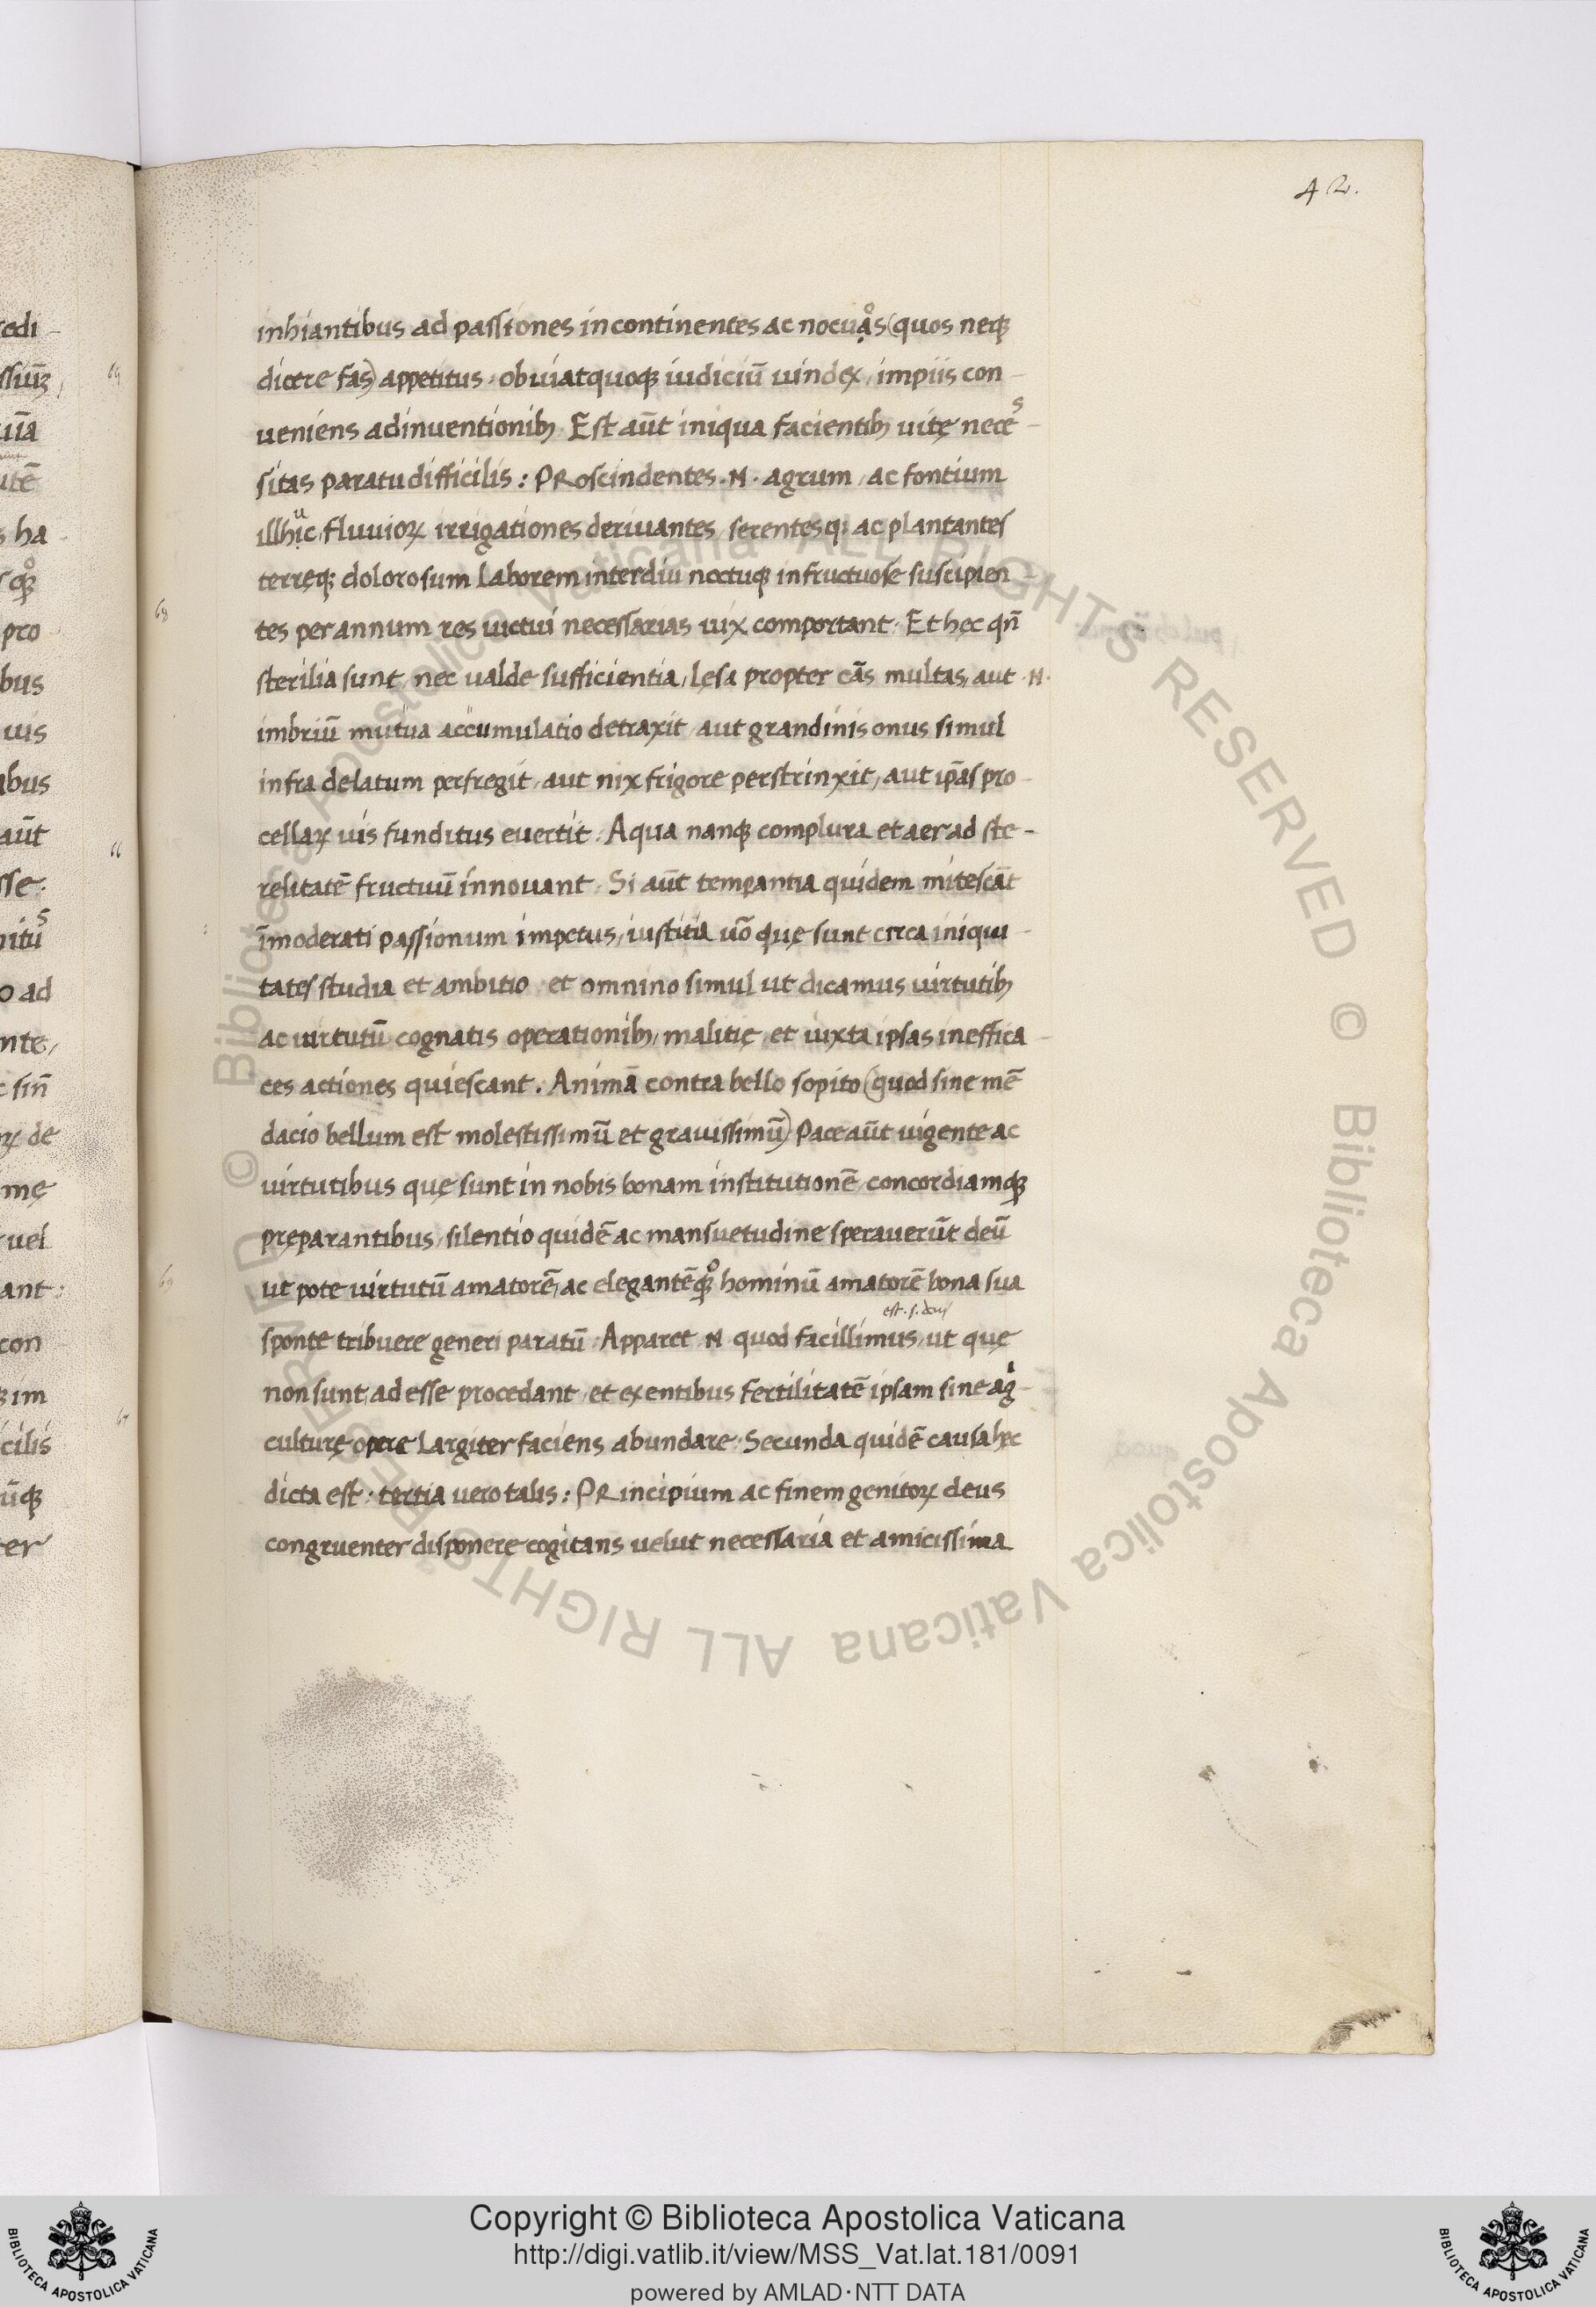 42.
inhiantibus ad passiones incontinentes ac nocuạos (quos neqꝫ
dicere fas) appetitus. obuiat quoqꝫ iudiciū uindex, impiis con-
ueniens adinuentionibꝫ. Est aūt iniqua facientibꝫ uitę neces-
sitas paratu difficilis: PRoscindentes .N. agrum, ac fontium
illhịuc, fluuioꝝ irrigationes deriuantes, serentesqꝫ ac plantantes
terręqꝫ dolorosum laborem interdiu noctuqꝫ infructuose suscipien-
68
tes per annum res uictui necessarias uix comportant. Et hęc qn̄
sterilia sunt, nec ualde sufficientia, lęsa propter cās multas, aut .N.
imbriū mutua accumulatio detraxit, aut grandinis onus simul
infra delatum perfregit, aut nix frigore perstrinxit, aut ip̄as pro-
cellaꝝ uis funditus euertit. Aqua nanqꝫ complura et aer ad ste-
relitatē fructuū innouant. Si aūt temꝑantia quidem mitescāt
īmoderati passionum impetus, iustitia uō quę sunt circa iniqui-
tates studia et ambitio et omnino simul ut dicamus uirtutibꝫ
ac uirtutū cognatis operationibꝫ, malitię et iuxta ipsas ineffica-
ces actiones quiescant. Animā contra bello sopito (quod sine mē
dacio bellum est molestissimū et grauissimū) Pace aūt uigente ac
uirtutibus quę sunt in nobis bonam institutionē concordiamqꝫ
pręparantibus, silentio quidē ac mansuetudine sperauerūt deū
69
ut pote uirtutū amatorē, ac elegantē qꝫo hominū amatorē bona sua
est .s. deus
sponte tribuere generi paratū. Apparet .N. quod facillimus, ut quę
non sunt, ad esse procedant, et ex entibus fertilitatē ipsam sine agi-
culturę opere largiter faciens abundare. Secunda quidē causa hęc
dicta est. tertia uero talis: PRincipium ac finem genitoꝝ deus
congruenter disponere cogitans uelut necessaria et amicissima
© Biblioteca Apostolica Vaticana ALL RIGHTS RESERVED © Biblioteca Apostolica Vaticana ALL RIGHTS RESERVED
Copyright © Biblioteca Apostolica Vaticana
http://digi.vatlib.it/view/MSS_Vat.lat.181/0091
powered by AMLAD·NTT DATA
BIBLIOTECA APOSTOLICA VATICANA
BIBLIOTECA APOSTOLICA VATICANA